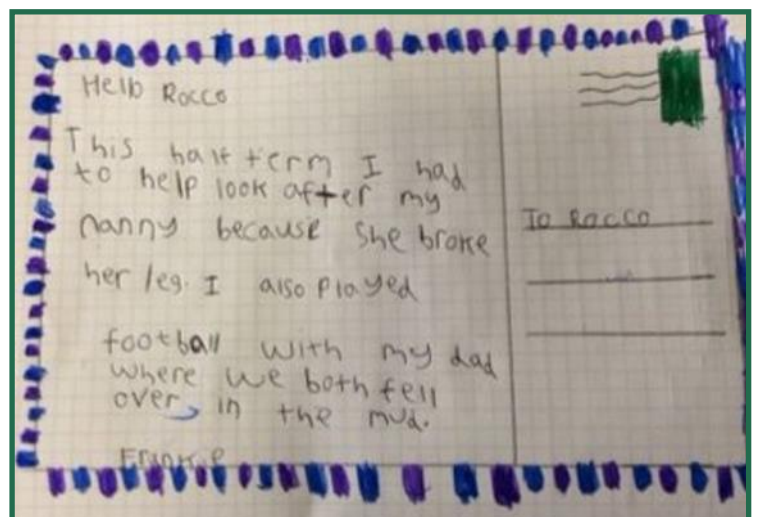 Hello Rocco
This half term I had
to help look after my
nanny because she broke
her leg. I also played
football with my dad
where we both fell
over in the mud.
Frankie
To Rocco